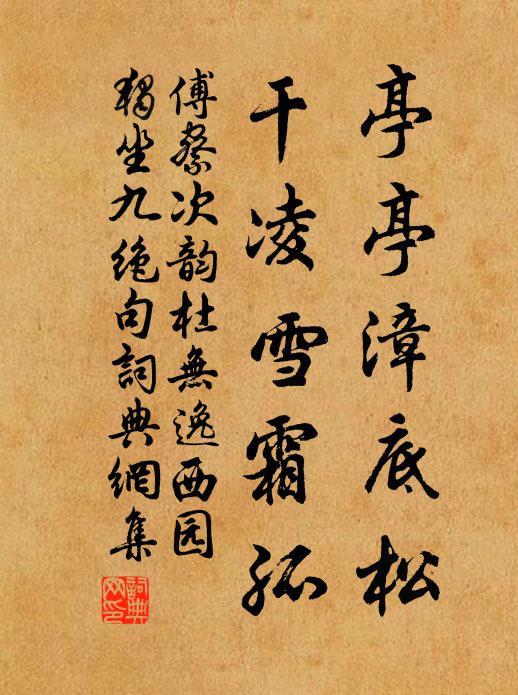 亭亭漳底松
干凌雪霜孤
傅察次韵杜無逸西园
獨坐九绝句詞典網集
詞典网印